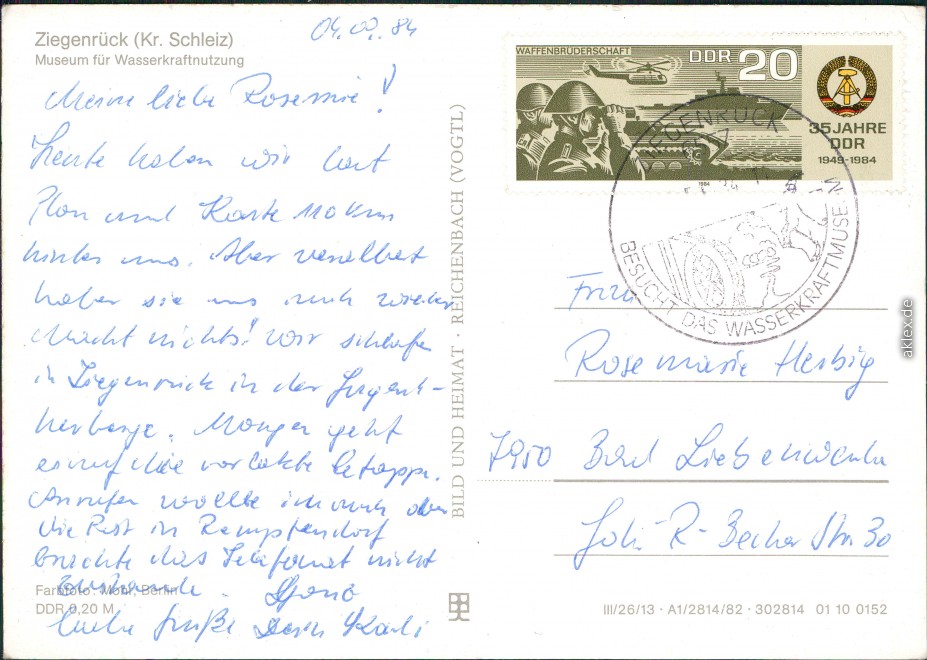 Ziegenrück (Kr. Schleiz)
Museum für Wasserkraftnutzung
84
Meine liebe Rosemie!
Heute haben wir laut
Plan und Karte
hinter uns. Aber verallbert
haben sie uns auch wieder
Macht nichts! Wir schlafen
in Ziegenrück in der Jugend-
herberge. Morgen geht
es auf die vorletzte Etappe.
Anrufen wollte ich auch aber
die Post in Remptendorf
brachte das Telefonat nicht
zustande.
Liebe Grüße Dein Karli
Farbfoto: Mohr, Berlin
DDR 0,20 M
BILD UND HEIMAT · REICHENBACH (VOGTL)
WAFFENBRÜDERSCHAFT
DDR 20
35 JAHRE
DDR
1949-1984
1984
ZIEGENRÜCK
BESUCHT DAS WASSERKRAFTMUSEUM
Frau
Rosemarie Herbig
7950 Bad Liebenwerda
Joh.-R.-Becher Str. 30
III/26/13 · A1/2814/82 · 302814 01 10 0152
aklex.de